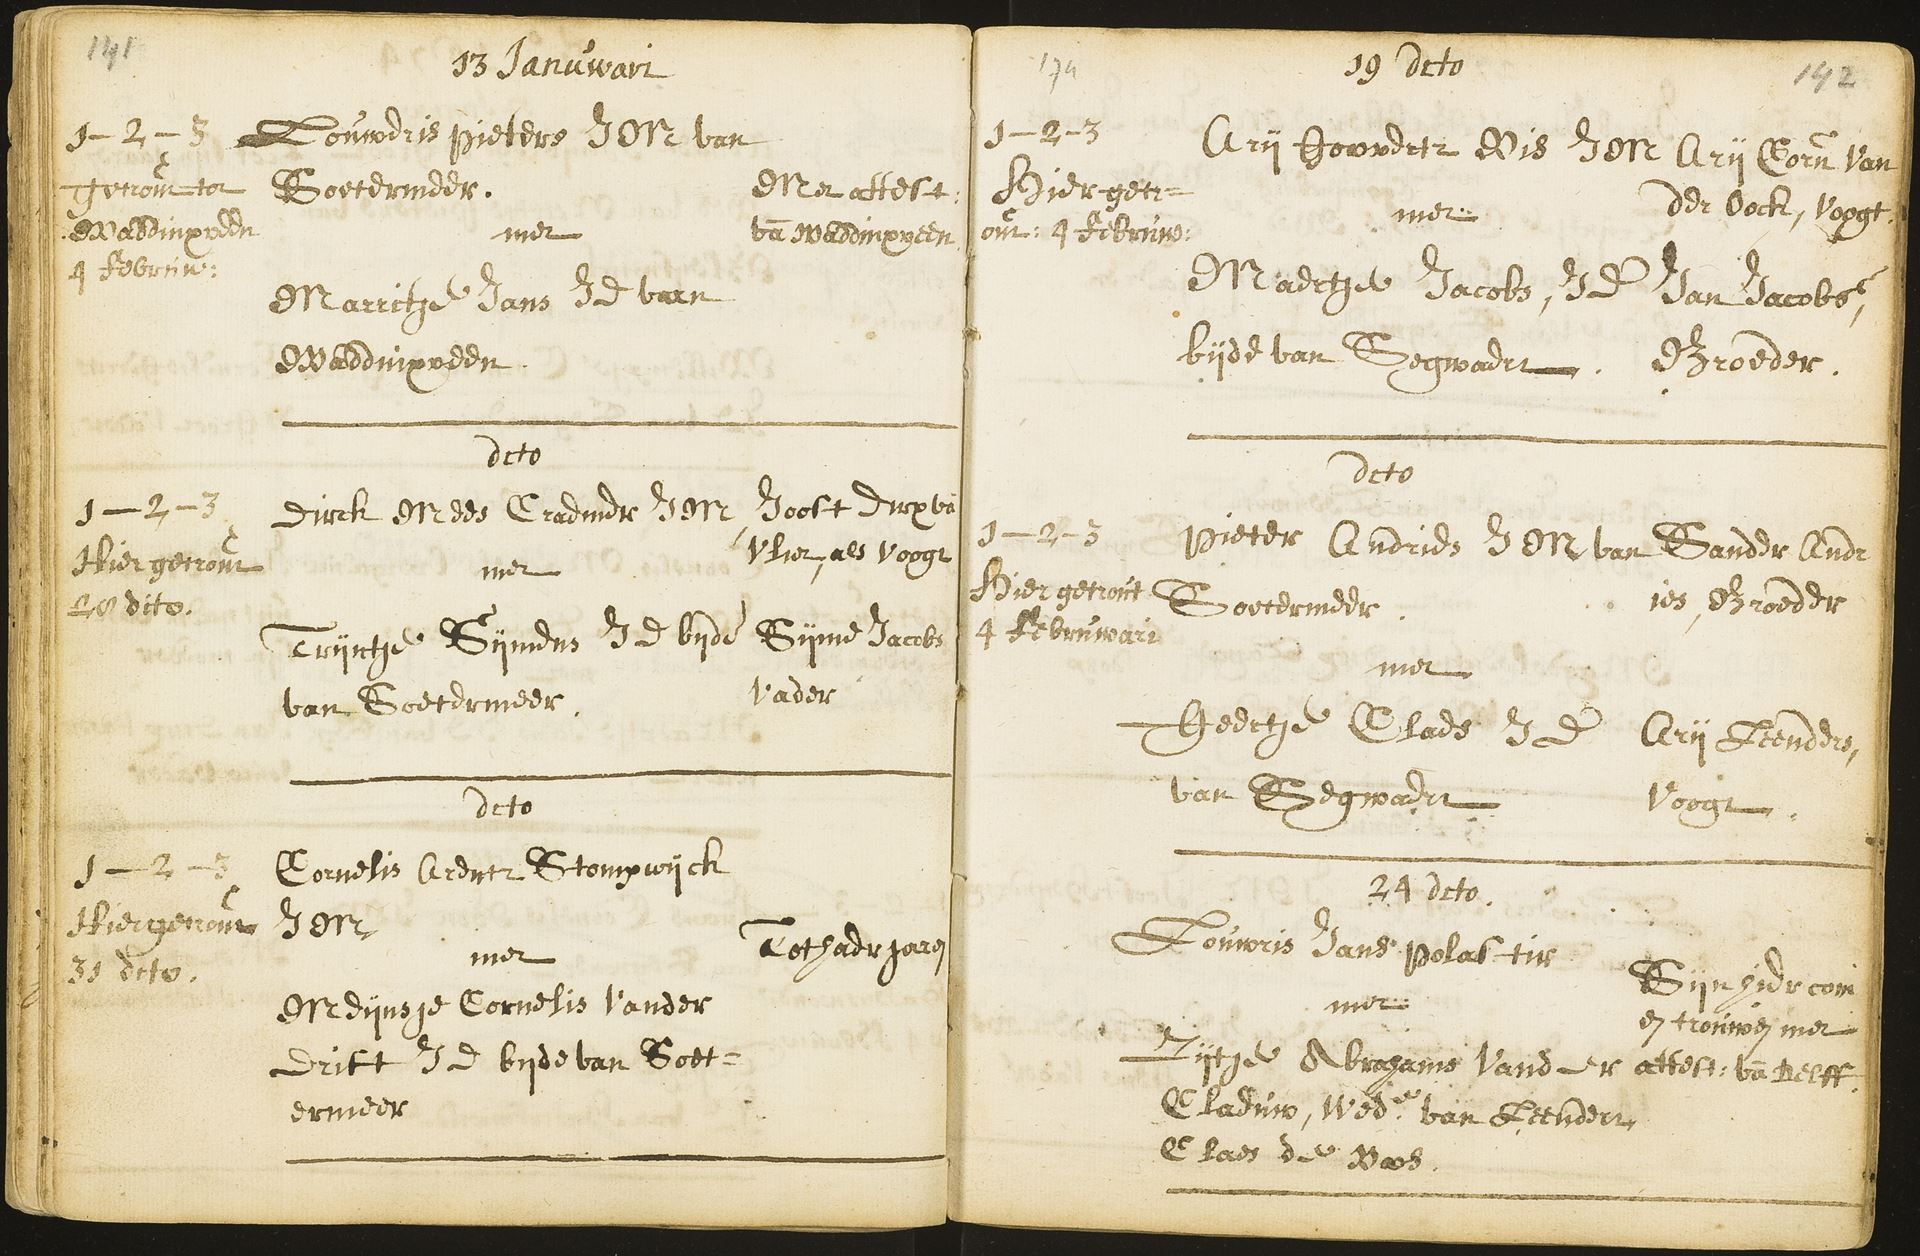 141
13 Januwari
1 - 2 - 3
getrout tot
Waddinxveen
4 Februw:
Louwdris pieters JM van
Soetermeer.
met
Met attest:
va Waddinxveen
Marritge Jans JD van
Waddinxveen
dcto
1 - 2 - 3
Hier getrout
28 dito.
Dirck Mees JM
met
Joost Dirx va
Vliet, als Voogt
Trijntge Sijmens JD bijde
van Soetermeer.
Sijme Jacobs
Vader
dcto
1 - 2 - 3
Hier getrout
31 dcto.
Cornelis Arentz Stompwijck
JM
met
Tot haer jaren
Meijnsje Cornelis Vander
Drift JD bijde van Soet=
ermeer
174
19 dcto
142
1 - 2 - 3
Hier getr=
out: 4 Februw:
Arij Govverts Wis JM
met
Arij Corn Van
der Bock, Voogt.
Maertge Jacobs, JD
bijde van Segwaert.
Jan Jacobs,
Broeder.
dcto
1 - 2 - 3
Hier getrout
4 Februwari
Pieter Andries JM van
Soetermeer.
Sander Andr
ies, Broeder
met
Geertge Claes JD
van Segwaert
Arij Leenders,
Voogt.
24 dcto.
Louwris Jans polastir
met
Sijn hier com
en trouwen met
attest: va Delff.
Abrahams Vander
Claeuw, Wede van Leendert
Claes de Vos.